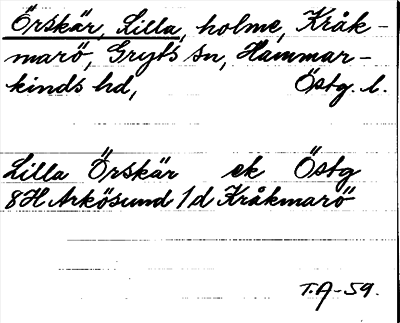 Örskär, Lilla, holme, Kråk-
marö, Gryts sn, Hammar-
kinds hd, Östg. l.
Lilla Örskär ek Östg
8H Arkösund 1d Kråkmarö
T.A-59.